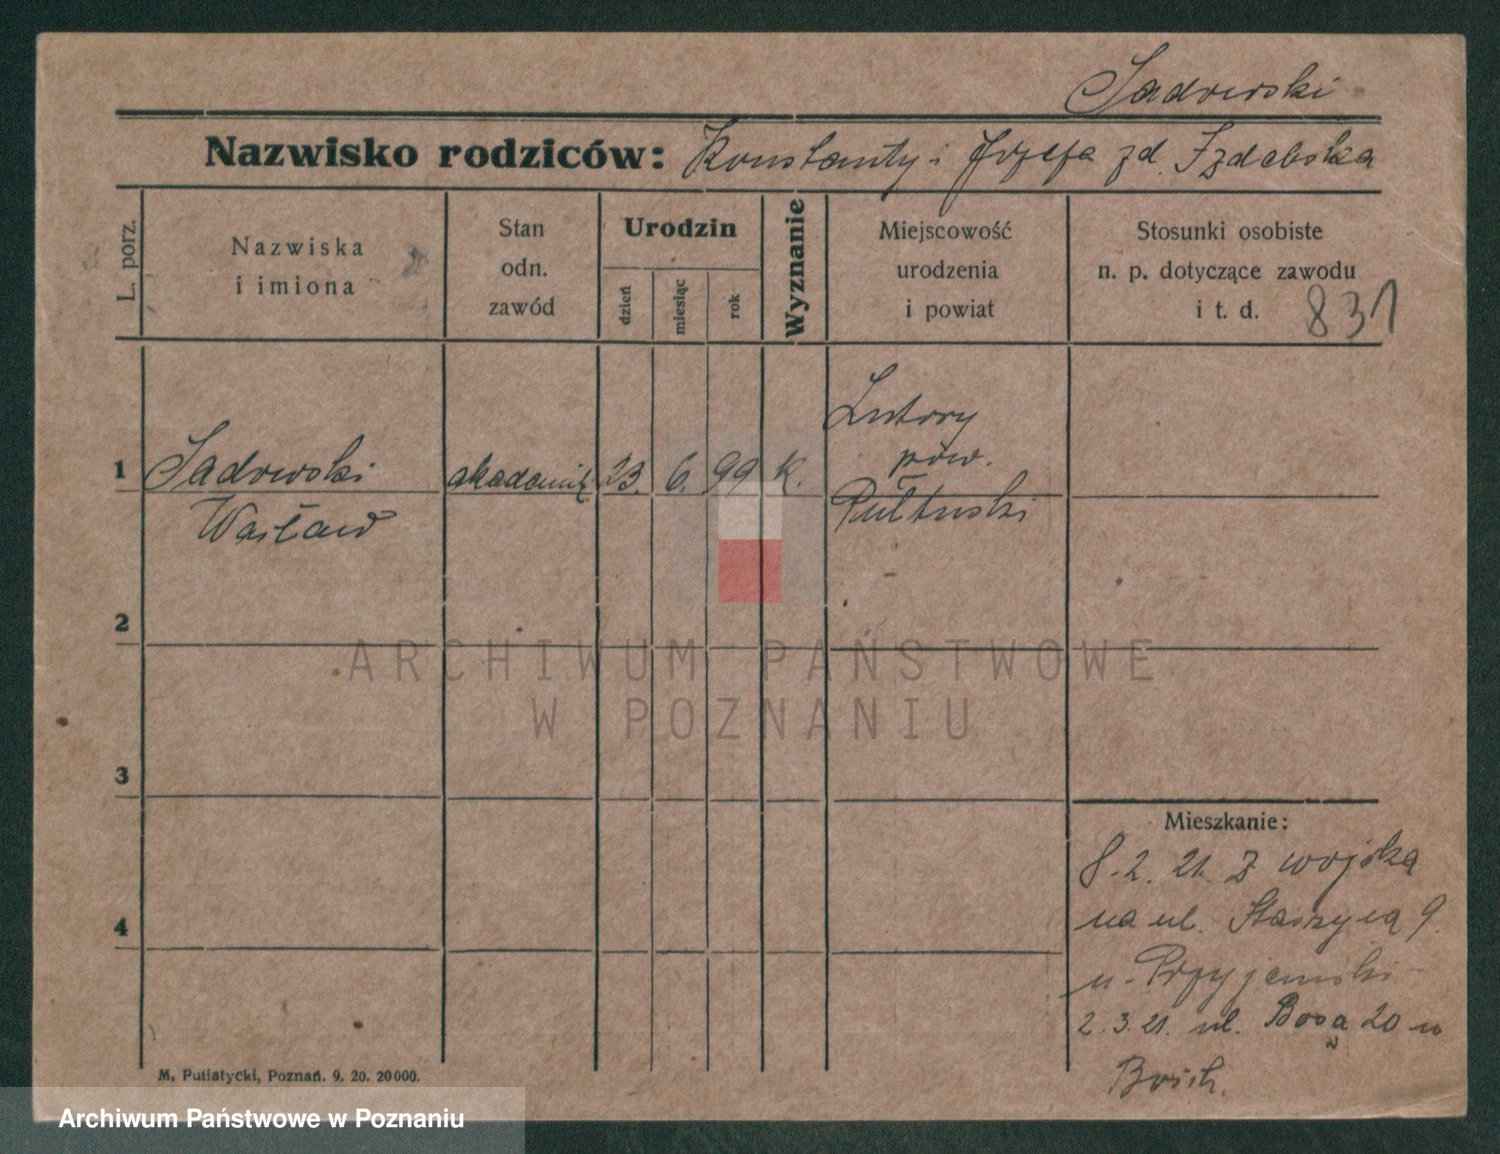 Sadowski
Nazwisko rodziców: Konstanty i Józefa zd. Izdebska
L. porz.
Nazwiska
i imiona
Stan
odn.
zawód
Urodzin
dzień
miesiąc
rok
Wyznanie
Miejscowość
urodzenia
i powiat
Stosunki osobiste
n. p. dotyczące zawodu
i t. d.
831
1
Sadowski
Wacław
23. 6. 99 k.
pow.
Pułtuski
2
3
4
ARCHIWUM PAŃSTWOWE
W POZNANIU
Mieszkanie:
8.2.21. Z wojska
na ul. Staszyca 9.
u Przyjemski
2.3.21. ul. 20 u
M. Putiatycki, Poznań. 9. 20. 20000.
Archiwum Państwowe w Poznaniu